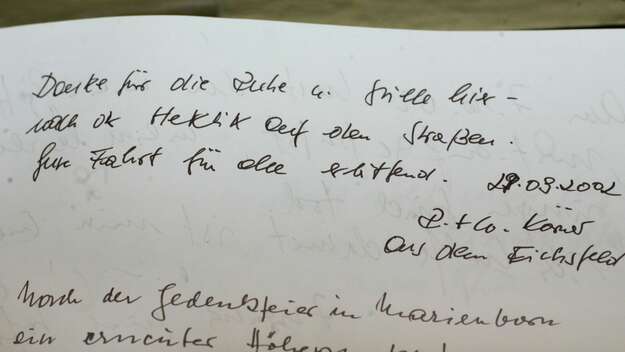 Danke für die Ruhe u. Stille hier –
nach der Hektik auf den Straßen.
Gute Fahrt für alle
29.09.2002
Körner
aus dem Eichsfeld
Nach der Gedenkfeier in Marienborn
ein erneuter